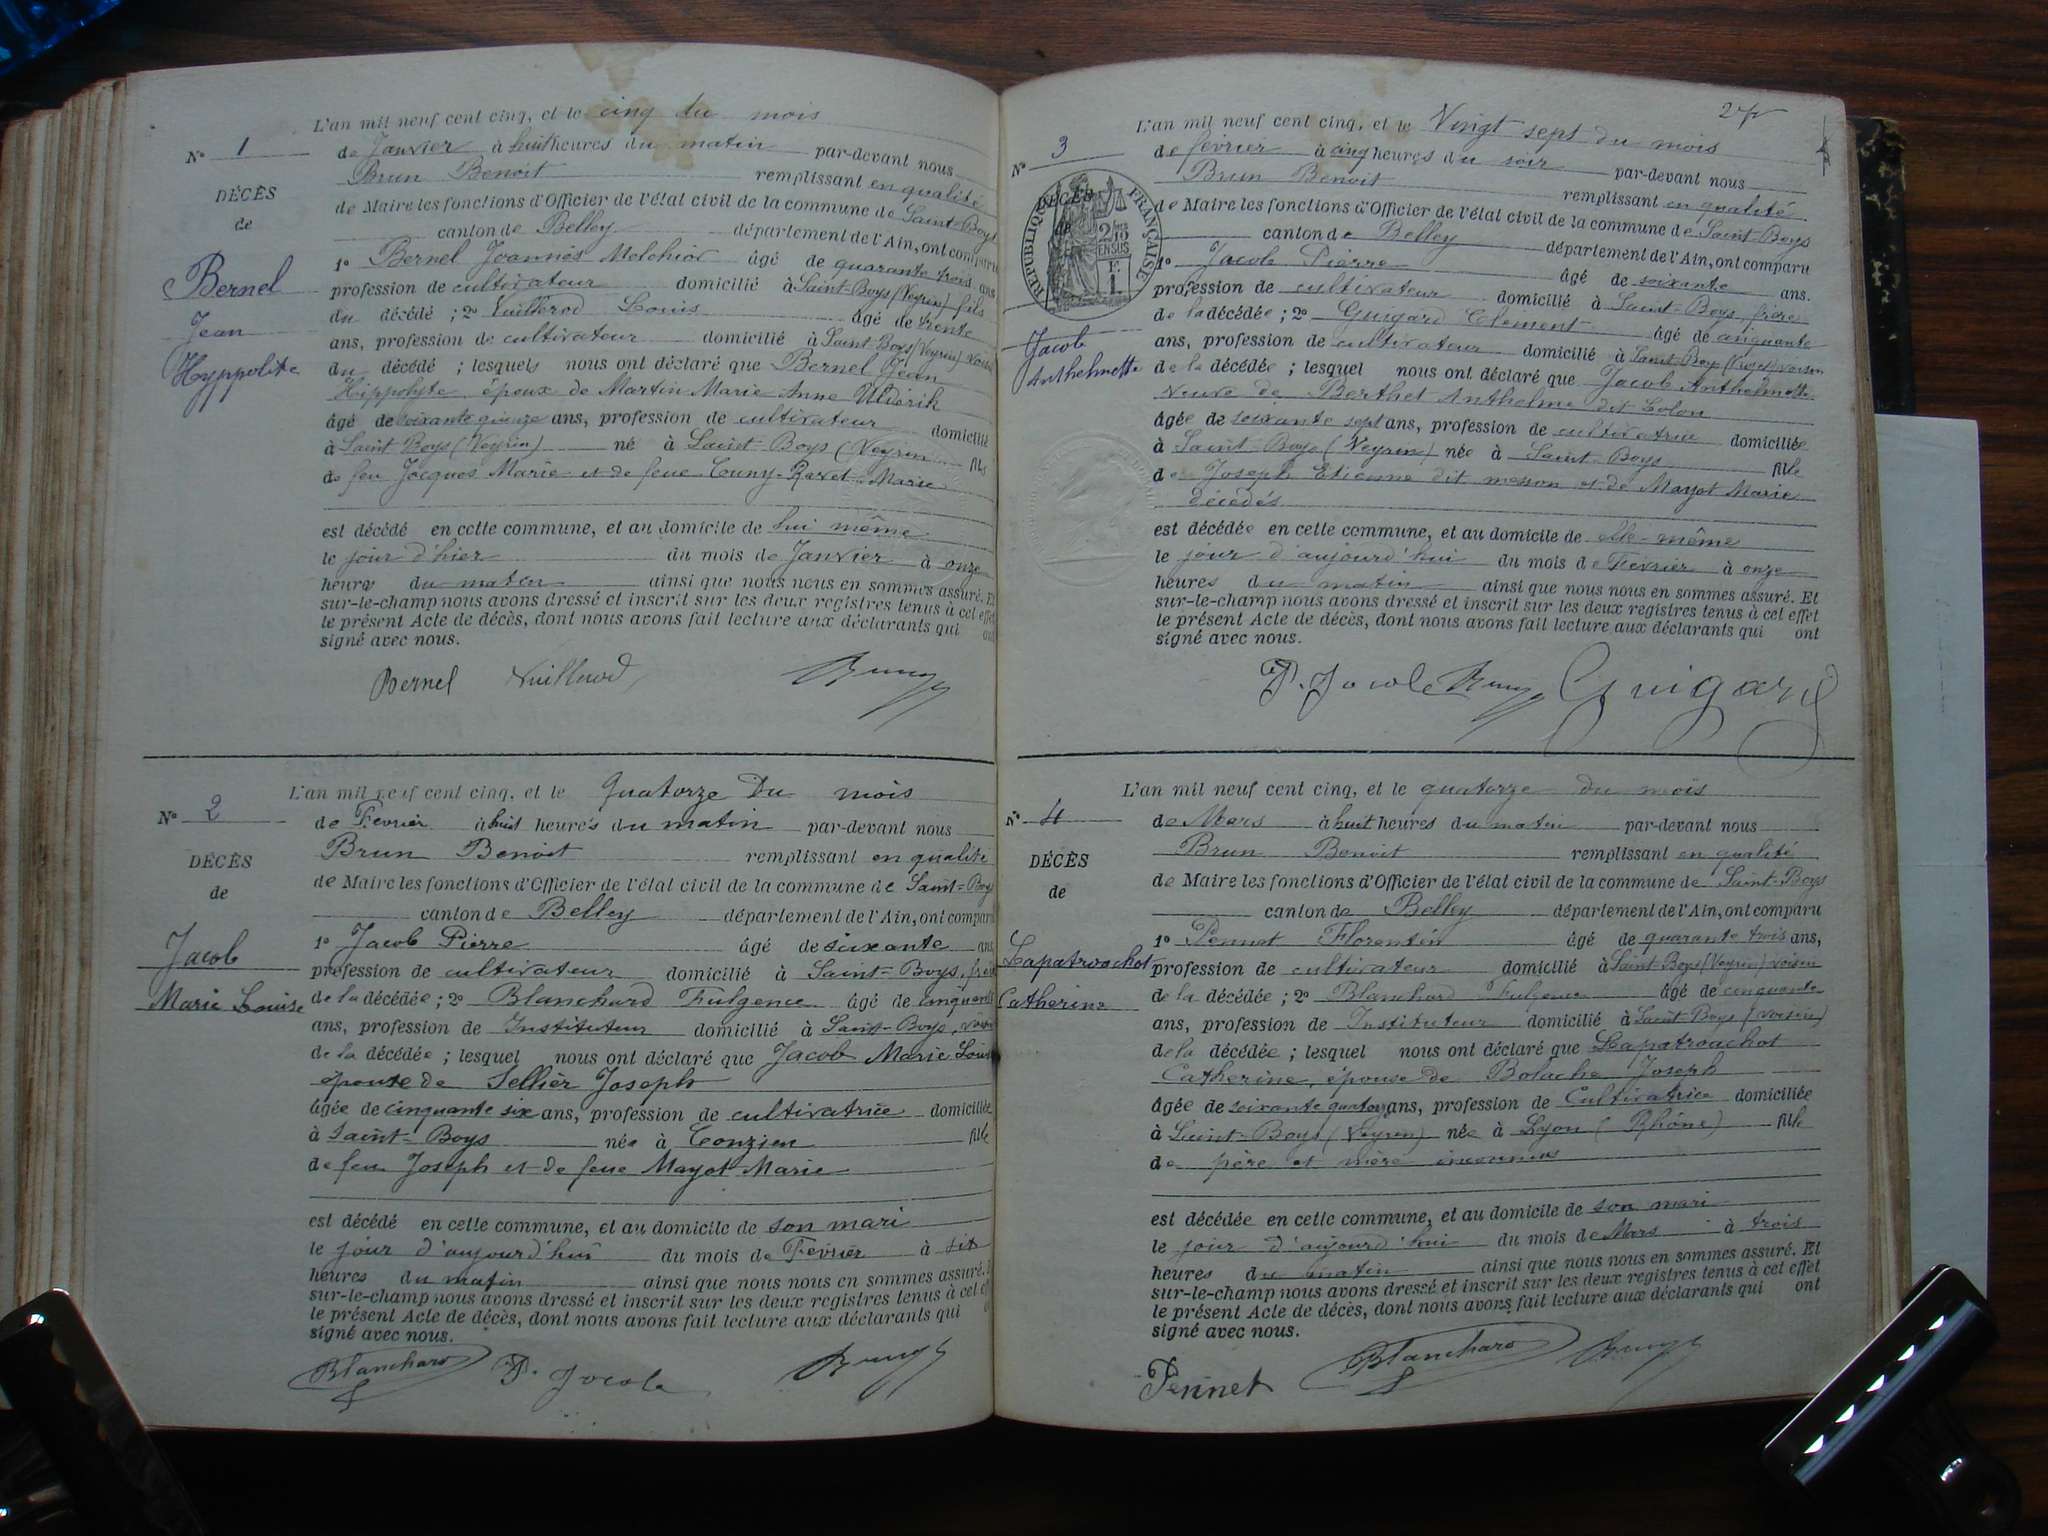 L'an mil neuf cent cinq, et le cinq du mois
N° 1
de Janvier à huit heures du matin par-devant nous
Brun Benoit remplissant en qualité
DÉCÈS
de Maire les fonctions d'Officier de l'état civil de la commune de Saint-Boys
de
canton de Belley département de l'Ain, ont comparu
Bernel
Jean
Hyppolite
1° Bernel Joannès Melchior âgé de quarante trois ans
profession de cultivateur domicilié à Saint-Boys (Veyrin) fils
du décédé ; 2° Vuillerod Louis âgé de trente
ans, profession de cultivateur domicilié à Saint-Boys (Veyrin) voisin
du décédé ; lesquels nous ont déclaré que Bernel Jean
Hippolyte, époux de Martin Marie Anne Ulderik
âgé de soixante quinze ans, profession de cultivateur domicilié
à Saint Boys (Veyrin) né à Saint-Boys (Veyrin fils
de feu Jacques Marie et de feue Cuny-Ravet Marie
est décédé en cette commune, et au domicile de lui même
le jour d'hier du mois de Janvier à onze
heures du maten ainsi que nous nous en sommes assuré. Et
sur-le-champ nous avons dressé et inscrit sur les deux registres tenus à cet effet
le présent Acte de décès, dont nous avons fait lecture aux déclarants qui ont
signé avec nous.
Bernel Vuillerod Brun
L'an mil neuf cent cinq, et le quatorze du mois
N° 2
de Fevrier à huit heures du matin par-devant nous
Brun Benoit remplissant en qualité
DÉCÈS
de Maire les fonctions d'Officier de l'état civil de la commune de Saint-Boys
de
canton de Belley département de l'Ain, ont comparu
Jacob
Marie Louise
1° Jacob Pierre âgé de soixante ans
profession de cultivateur domicilié à Saint-Boys, frère
de la décédée ; 2° Blanchard Fulgence âgé de cinquante
ans, profession de Instituteur domicilié à Saint-Boys, voisin
de la décédée ; lesquel nous ont déclaré que Jacob Marie Louise
épouse de Sellier Joseph
âgée de cinquante six ans, profession de cultivatrice domiciliée
à Saint-Boys née à Conzieu fille
de feu Joseph et de feue Mayot Marie
est décédé en cette commune, et au domicile de son mari
le jour d'aujourd'hui du mois de Février à six
heures du matin ainsi que nous nous en sommes assuré.
sur-le-champ nous avons dressé et inscrit sur les deux registres tenus à cet effet
le présent Acte de décès, dont nous avons fait lecture aux déclarants qui
signé avec nous.
Blanchard P. Jacob Brun
27
L'an mil neuf cent cinq, et le Vingt sept du mois
N° 3
de février à cinq heures du soir par-devant nous
Brun Benoit remplissant en qualité
DÉCÈS
de
RÉPUBLIQUE FRANÇAISE
de Maire les fonctions d'Officier de l'état civil de la commune de Saint Boys
canton de Belley département de l'Ain, ont comparu
Jacob
Anthelmette
1° Jacob Pierre âgé de soixante ans.
profession de cultivateur domicilié à Saint-Boys, frère
de la décédée ; 2° Guigard Clément âgé de cinquante
ans, profession de cultivateur domicilié à Saint Boys voisin
de la décédée ; lesquel nous ont déclaré que Jacob Anthelmette
Veuve de Berthet Anthelme dit Colon
âgée de soixante sept ans, profession de cultivatrice domiciliée
à Saint Boys (Veyrin) née à Saint-Boys fille
de Joseph Etienne dit messon et de Mayot Marie
décédés
est décédée en cette commune, et au domicile de elle-même
le jour d'aujourd'hui du mois de Février à onze
heures du matin ainsi que nous nous en sommes assuré. Et
sur-le-champ nous avons dressé et inscrit sur les deux registres tenus à cet effet
le présent Acte de décès, dont nous avons fait lecture aux déclarants qui ont
signé avec nous.
P. Jacob Brun Guigard
L'an mil neuf cent cinq, et le quatorze du mois
N° 4
de Mars à huit heures du matin par-devant nous
Brun Benoit remplissant en qualité
DÉCÈS
de Maire les fonctions d'Officier de l'état civil de la commune de Saint-Boys
de
canton de Belley département de l'Ain, ont comparu
Lapatroachot
Catherine
1° Pennet Florentin âgé de quarante trois ans,
profession de cultivateur domicilié à Saint-Boys (Veyrin) voisin
de la décédée ; 2° Blanchard Fulgence âgé de cinquante
ans, profession de Instituteur domicilié à Saint-Boys (voisin)
de la décédée ; lesquel nous ont déclaré que Lapatroachot
Catherine, épouse de Bolache Joseph
âgée de soixante quatorze ans, profession de Cultivatrice domiciliée
à Saint-Boys (Veyrin) née à Lyon (Rhône) fille
de père et mère inconnus
est décédée en cette commune, et au domicile de son mari
le jour d'aujourd'hui du mois de Mars à trois
heures du matin ainsi que nous nous en sommes assuré. Et
sur-le-champ nous avons dressé et inscrit sur les deux registres tenus à cet effet
le présent Acte de décès, dont nous avons fait lecture aux déclarants qui ont
signé avec nous.
Pennet Blanchard Brun